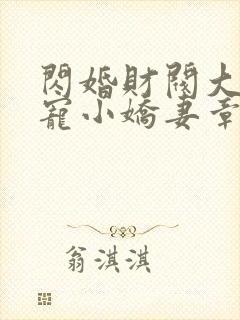 閃婚財閥大
寵小嬌妻章
翁淇淇